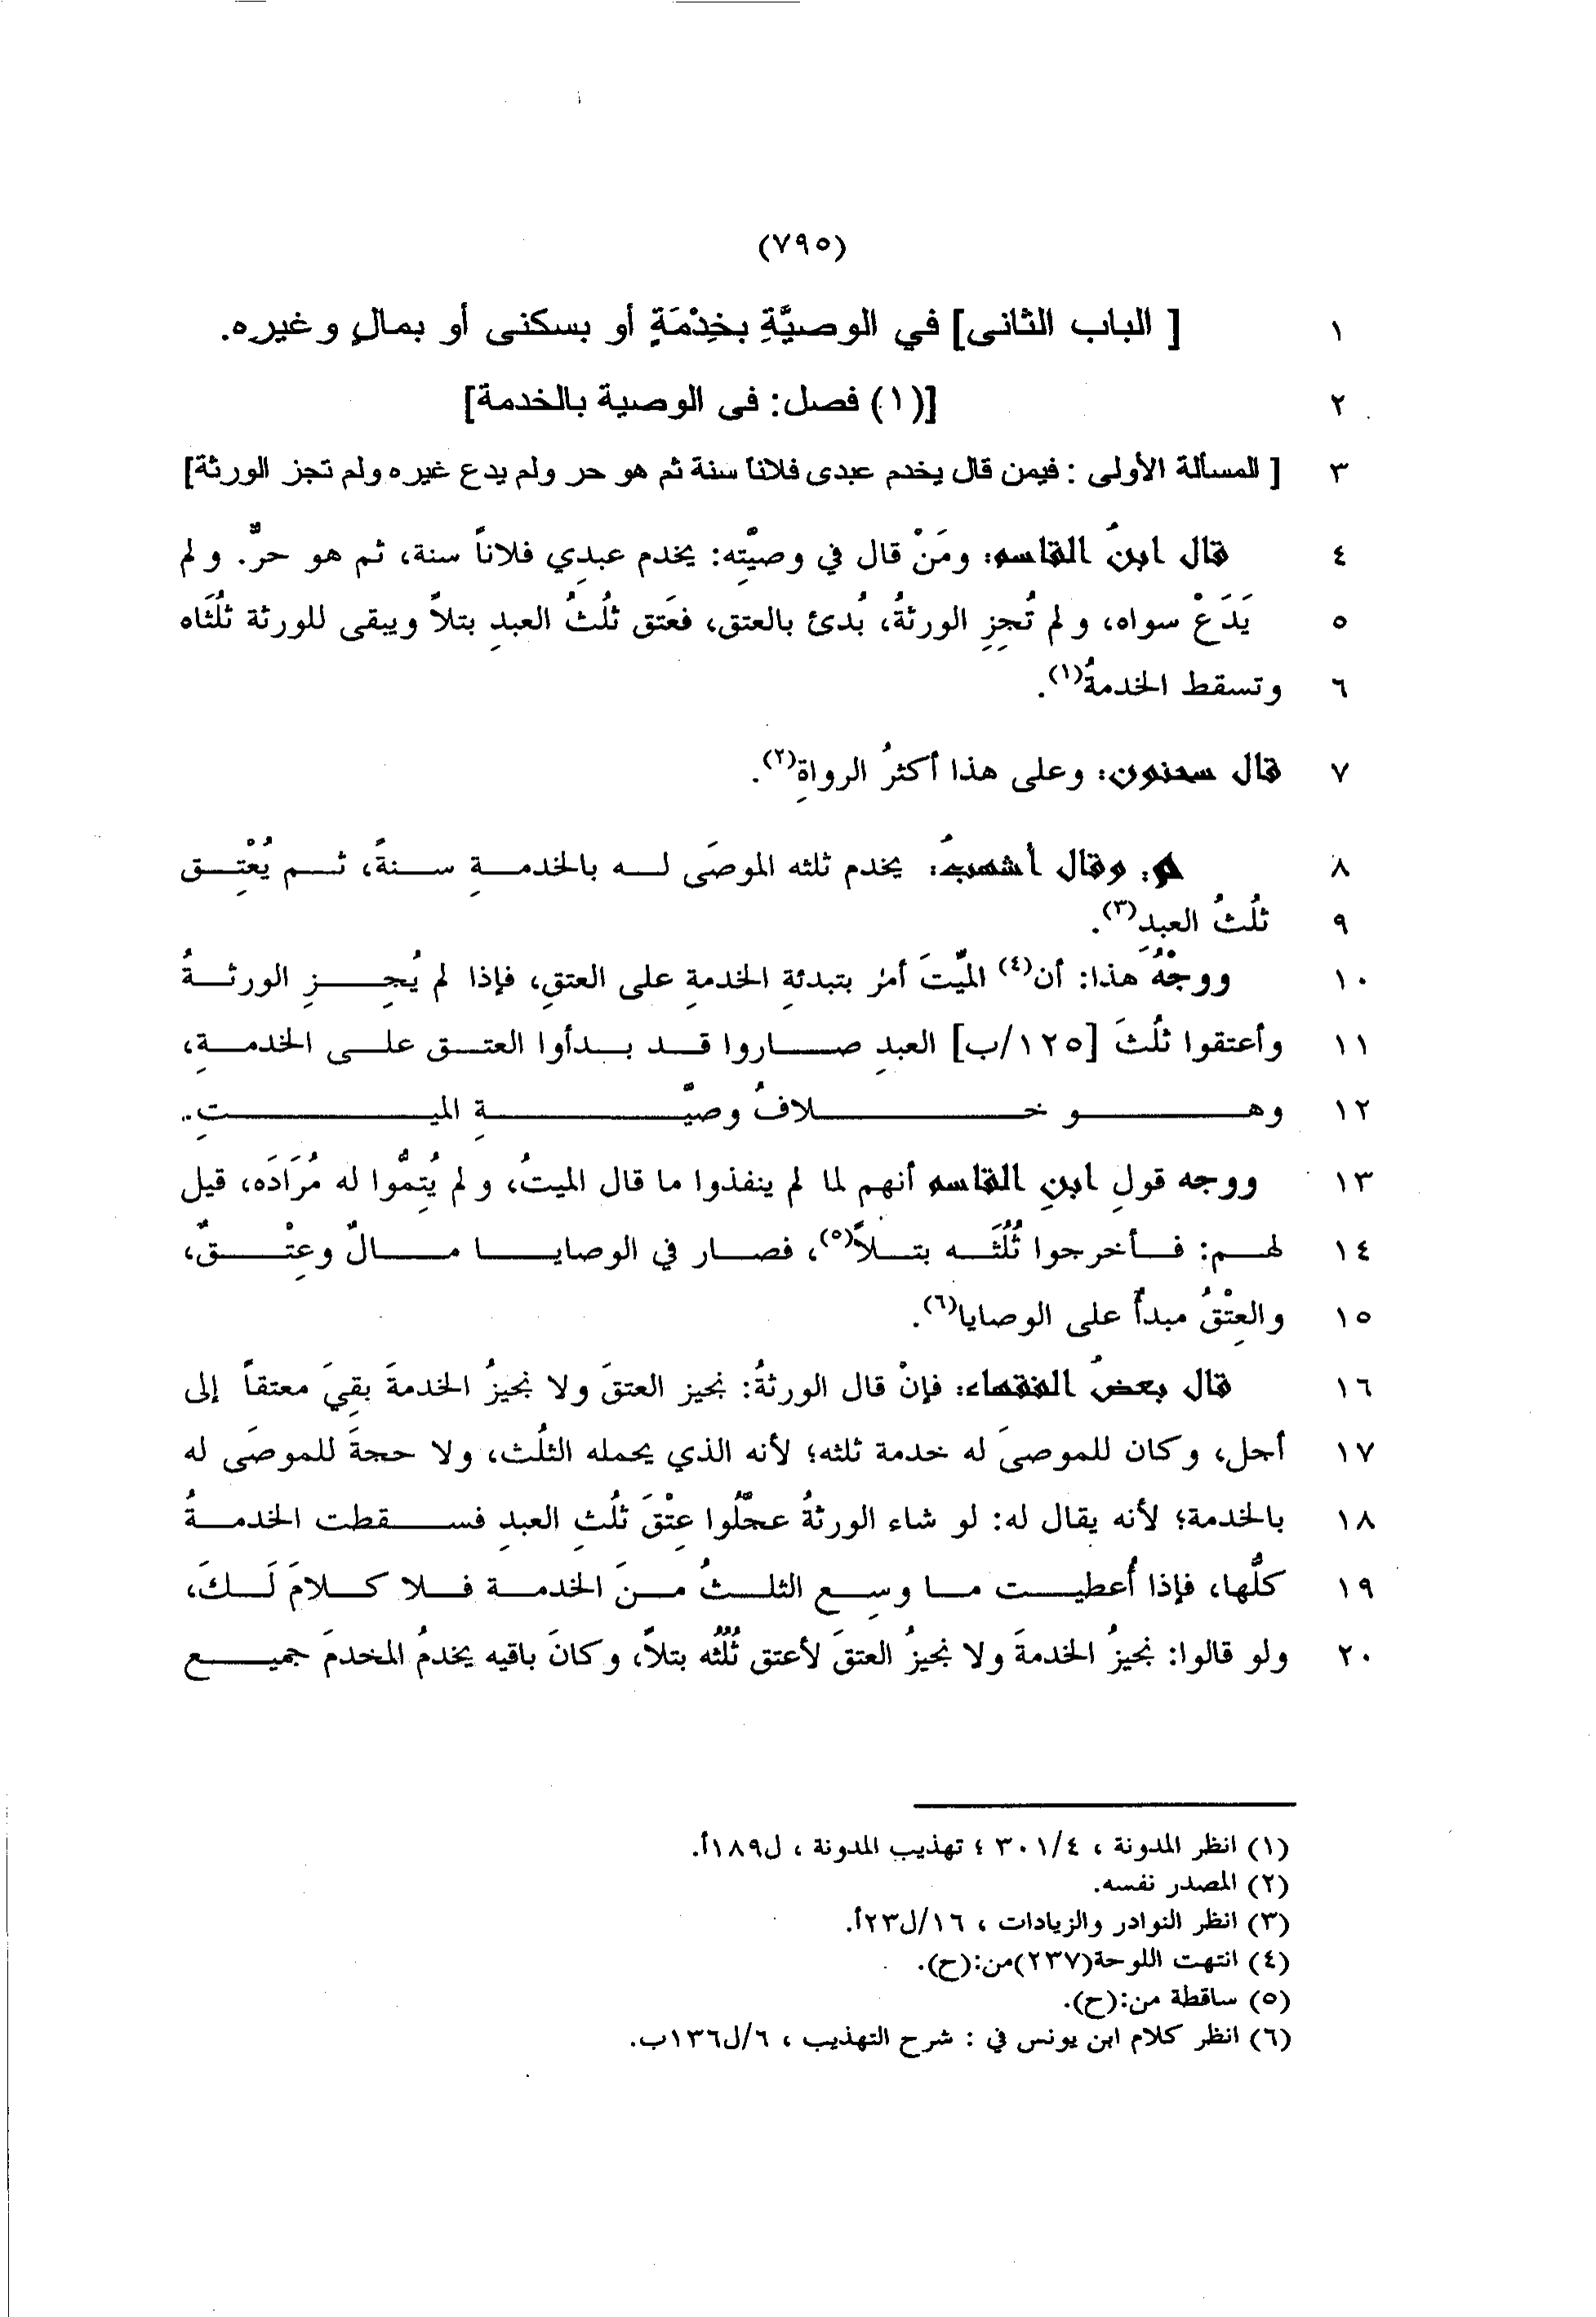 (٧٩٥)
١ [ الباب الثانى] في الوصيَّةِ بخِدْمَةٍ أو بسكنى أو بمالٍ وغيره.
٢ [(١) فصل: فى الوصية بالخدمة]
٣ [ المسألة الأولى : فيمن قال يخدم عبدى فلانا سنة ثم هو حر ولم يدع غيره ولم تجز الورثة]
٤ قال ابنُ القاسم: ومَنْ قال في وصيَّتِه: يخدم عبدِي فلاناً سنة، ثم هو حرٌّ. ولم
٥ يَدَعْ سواه، ولم تُجِزِ الورثةُ، بُدئ بالعتق، فعَتق ثلُثُ العبدِ بتلاً ويبقى للورثة ثلُثَاه
٦ وتسقط الخدمةُ(١).
٧ قال سحنون: وعلى هذا أكثرُ الرواةِ(٢).
٨ م: وقال أشهبُ: يخدم ثلثه الموصَى له بالخدمةِ سنةً، ثم يُعْتِق
٩ ثلُثُ العبدِ(٣).
١٠ ووجْهُ هذا: أن(٤) الميِّتَ أمرَ بتبدئةِ الخدمةِ على العتقِ، فإذا لم يُجِزِ الورثةُ
١١ وأعتقوا ثلُثَ [١٢٥/ب] العبدِ صاروا قد بدأوا العتق على الخدمةِ،
١٢ وهو خلافُ وصيَّةِ الميتِ.
١٣ ووجه قولِ ابنِ القاسم أنهم لما لم ينفذوا ما قال الميتُ، ولم يُتِمُّوا له مُرَادَه، قيل
١٤ لهم: فأخرجوا ثُلُثَه بتلاً(٥)، فصار في الوصايا مالٌ وعِتْقٌ،
١٥ والعِتْقُ مبدأٌ على الوصايا(٦).
١٦ قال بعضُ الفقهاء: فإنْ قال الورثةُ: نجيز العتقَ ولا نجيزُ الخدمةَ بقِيَ معتقاً إلى
١٧ أجل، وكان للموصىَ له خدمة ثلثه؛ لأنه الذي يحمله الثلُث، ولا حجةَ للموصَى له
١٨ بالخدمة؛ لأنه يقال له: لو شاء الورثةُ عجَّلُوا عِتْقَ ثلُثِ العبدِ فسقطت الخدمةُ
١٩ كلُّها، فإذا أُعطيت ما وسِع الثلثُ منَ الخدمة فلا كلامَ لَكَ،
٢٠ ولو قالوا: نجيزُ الخدمةَ ولا نجيزُ العتقَ لأعتق ثُلُثُه بتلاً، وكانَ باقيه يخدمُ المخدمَ جميع
(١) انظر المدونة ، ٣٠١/٤ ؛ تهذيب المدونة ، ل١٨٩أ.
(٢) المصدر نفسه.
(٣) انظر النوادر والزيادات ، ١٦/ل٢٣أ.
(٤) انتهت اللوحة(٢٣٧)من:(ح).
(٥) ساقطة من:(ح).
(٦) انظر كلام ابن يونس في : شرح التهذيب ، ٦/ل١٣٦ب.